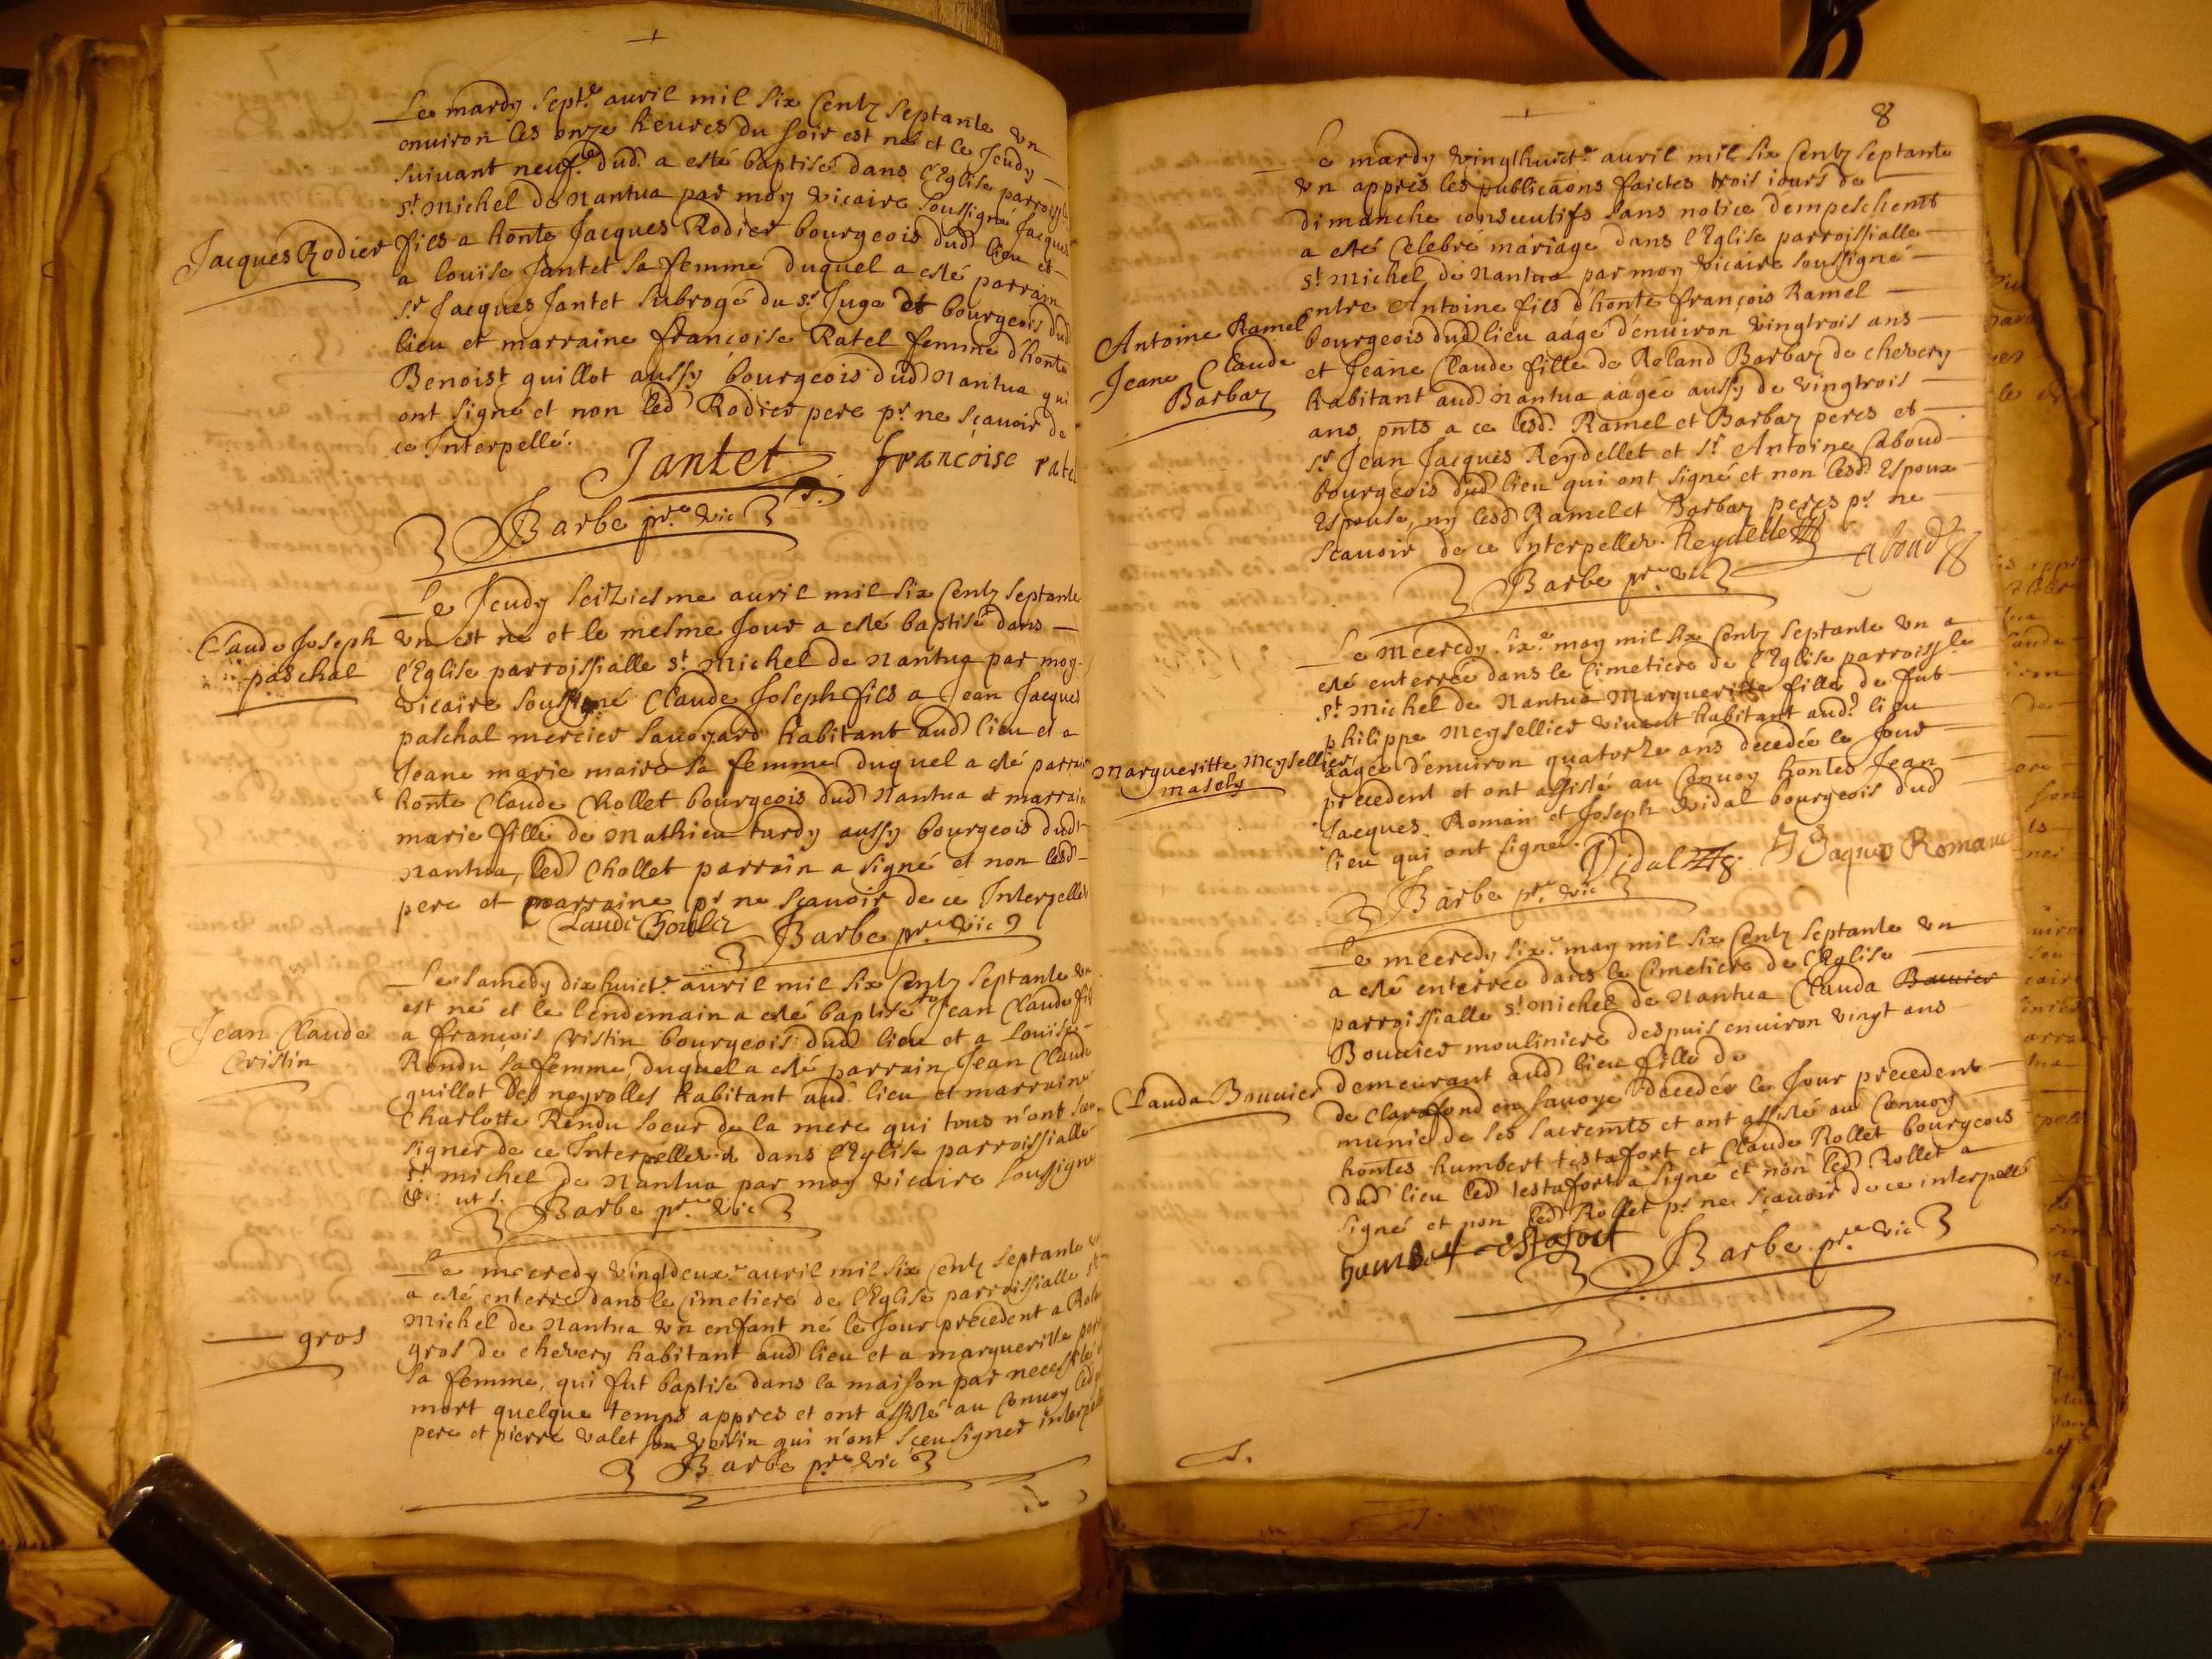 Le mardy sept.e auril mil six Centz septante vn
enuiron les onze heures du soir est né et le Jeudy
suiuant neuf.e dud. a esté baptisé dans l'Eglise parroissle
st Michel de Nantua par moy vicaire soussigné Jacques
Jacques Rodier
fils a honte Jacques Rodier bourgeois dud lieu et
a louise Jantet sa femme duquel a esté parrain
sr Jacques Jantet subrogé du sr Juge et bourgeois dud
lieu et marraine françoise Ratel femme d'honte
Benoist guillot aussy bourgeois dud Nantua qui
ont signé et non led Rodier pere pr ne sçauoir de
ce Interpellé.
Jantet françoise ratel
Barbe pre vic
Le Jeudy seiziesme auril mil six Centz septante
Claude Joseph
paschal
vn est né et le mesme Jour a esté baptisé dans
l'Eglise parroissialle st Michel de Nantua par moy
vicaire soussigné Claude Joseph fils a Jean Jacques
paschal mercier sauoyard habitant aud lieu et a
Jeane marie maire sa femme duquel a esté parrain
honte Claude Chollet bourgeois dud Nantua et marraine
marie fille de Mathieu tardy aussy bourgeois dudt
Nantua, led Chollet parrain a signé et non lesd
pere et marraine pr ne sçauoir de ce Interpellés
Claude Barbe pre vic
Le samedy dixhuict.e auril mil six Centz septante vn
est né et le lendemain a esté baptisé Jean Claude fils
Jean Claude
Cristin
a françois Cristin bourgeois dud lieu et a Louise
Rendu sa femme, duquel a esté parrain Jean Claude
guillot des neyrolles habitant aud. lieu et marraine
Charlotte Rendu soeur de la mere qui tous n'ont sceu
signer de ce Interpellés dans l'Eglise parroissialle
st michel de Nantua par moy vicaire soussigné
ut s.
Barbe pre vic
Le mecredy vingtdeux.e auril mil six Centz septante vn
a esté enterré dans le Cimetiere de l'Eglise parroissialle st
Michel de Nantua vn enfant né le Jour precedent a
gros
gros de chevery habitant aud lieu et a margueritte
sa femme, qui fut baptisé dans la maison par necessité
mort quelque temps appres et ont assisté au Conuoy led
pere et pierre valet son voisin qui n'ont sceu signer
Barbe pre vic
8
Le mardy vingthuict.e auril mil six Centz septante
vn appres les publicaons faictes trois iours de
dimanche consecutifs sans notice dempeschemt
a esté Celebré mariage dans l'Eglise parroissialle
st Michel de Nantua par moy vicaire soussigné
entre Antoine fils d'honte françois Ramel
Antoine Ramel
Jeane Claude
Barbaz
bourgeois dud lieu aagé d'enuiron vingtrois ans
et Jeane Claude fille de Roland Barbaz de chevery
habitant aud Nantua aagée aussy de vingtrois
ans, pnts a ce lesd. Ramel et Barbaz peres et
sr Jean Jacques Reydellet et sr Antoine Aboud
bourgeois dud lieu qui ont signé et non lesd. Espoux
Espouse, ny lesd Ramel et Barbaz peres pr ne
scauoir de ce Interpellés. Reydellet aboud
Barbe pre vic
Le Mecredy six.e may mil six Centz septante vn a
esté enterrée dans le Cimetiere de l'Eglise parroissle
st Michel de Nantua Margueritte fille de fut
philippe Meysellier viuant habitant aud lieu
Margueritte Meysellier
aagée d'enuiron quatorze ans decedée le Jour
precedent et ont assisté au Conuoy hontes Jean
Jacques Roman et Joseph vidal bourgeois dud
lieu qui ont signé. Vidal Jaques Roman
Barbe pre vic
Le mecredy six.e may mil six Centz septante vn
a esté enterrée dans le Cimetiere de l'Eglise
parroissialle st Michel de Nantua Clauda Bouuier
Bouuier mouliniere despuis enuiron vingt ans
Clauda Bouuier
demeurant aud lieu fille de
de Clarafond en sauoye decedée le Jour precedent
munie de ses sacremts et ont assisté au Conuoy
hontes humbert testafort et Claude Rollet bourgeois
dud lieu led testafort a signé et non led. Rollet a
signé et non led Rollet pr ne sçauoir de ce interpellé
humbert testafort
Barbe pre vic